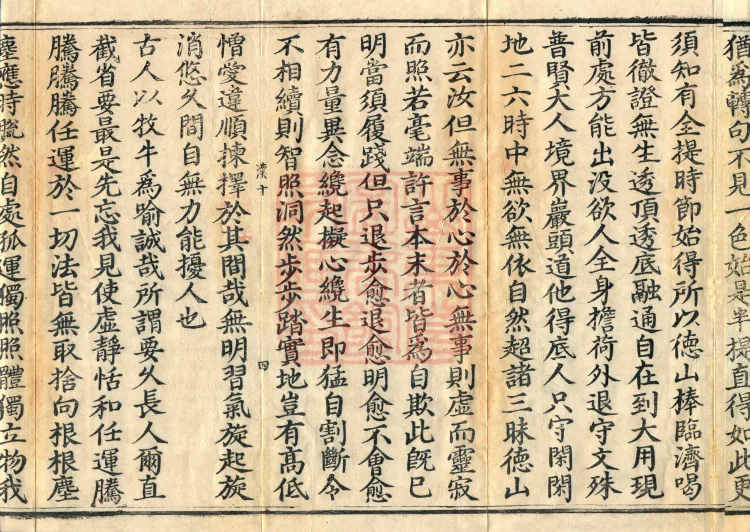 猶為轉句不見一色始是半提直得如此更
須知有全提時節始得所以德山棒臨濟喝
皆徹證無生透頂透底融通自在到大用現
前處方能出没欲人全身擔荷外退守文殊
普賢大人境界巖頭道他得底人只守閑閑
地二六時中無欲無依自然超諸三昧德山
亦云汝但無事於心於心無事則虛而靈寂
而照若毫端許言本末者皆為自欺此旣已
明當須履踐但只退步愈退愈明愈不會愈
有力量異念纔起擬心纔生即猛自割斷令
不相續則智照洞然步步踏實地豈有高低
憎愛違順揀擇於其間哉無明習氣旋起旋
漢十
四
消悠久間自無力能擾人也
古人以牧牛為喻誠哉所謂要久長人爾直
截省要最是先忘我見使虛靜恬和任運騰
騰騰騰任運於一切法皆無取捨向根根塵
塵應時脫然自處孤運獨照照體獨立物我